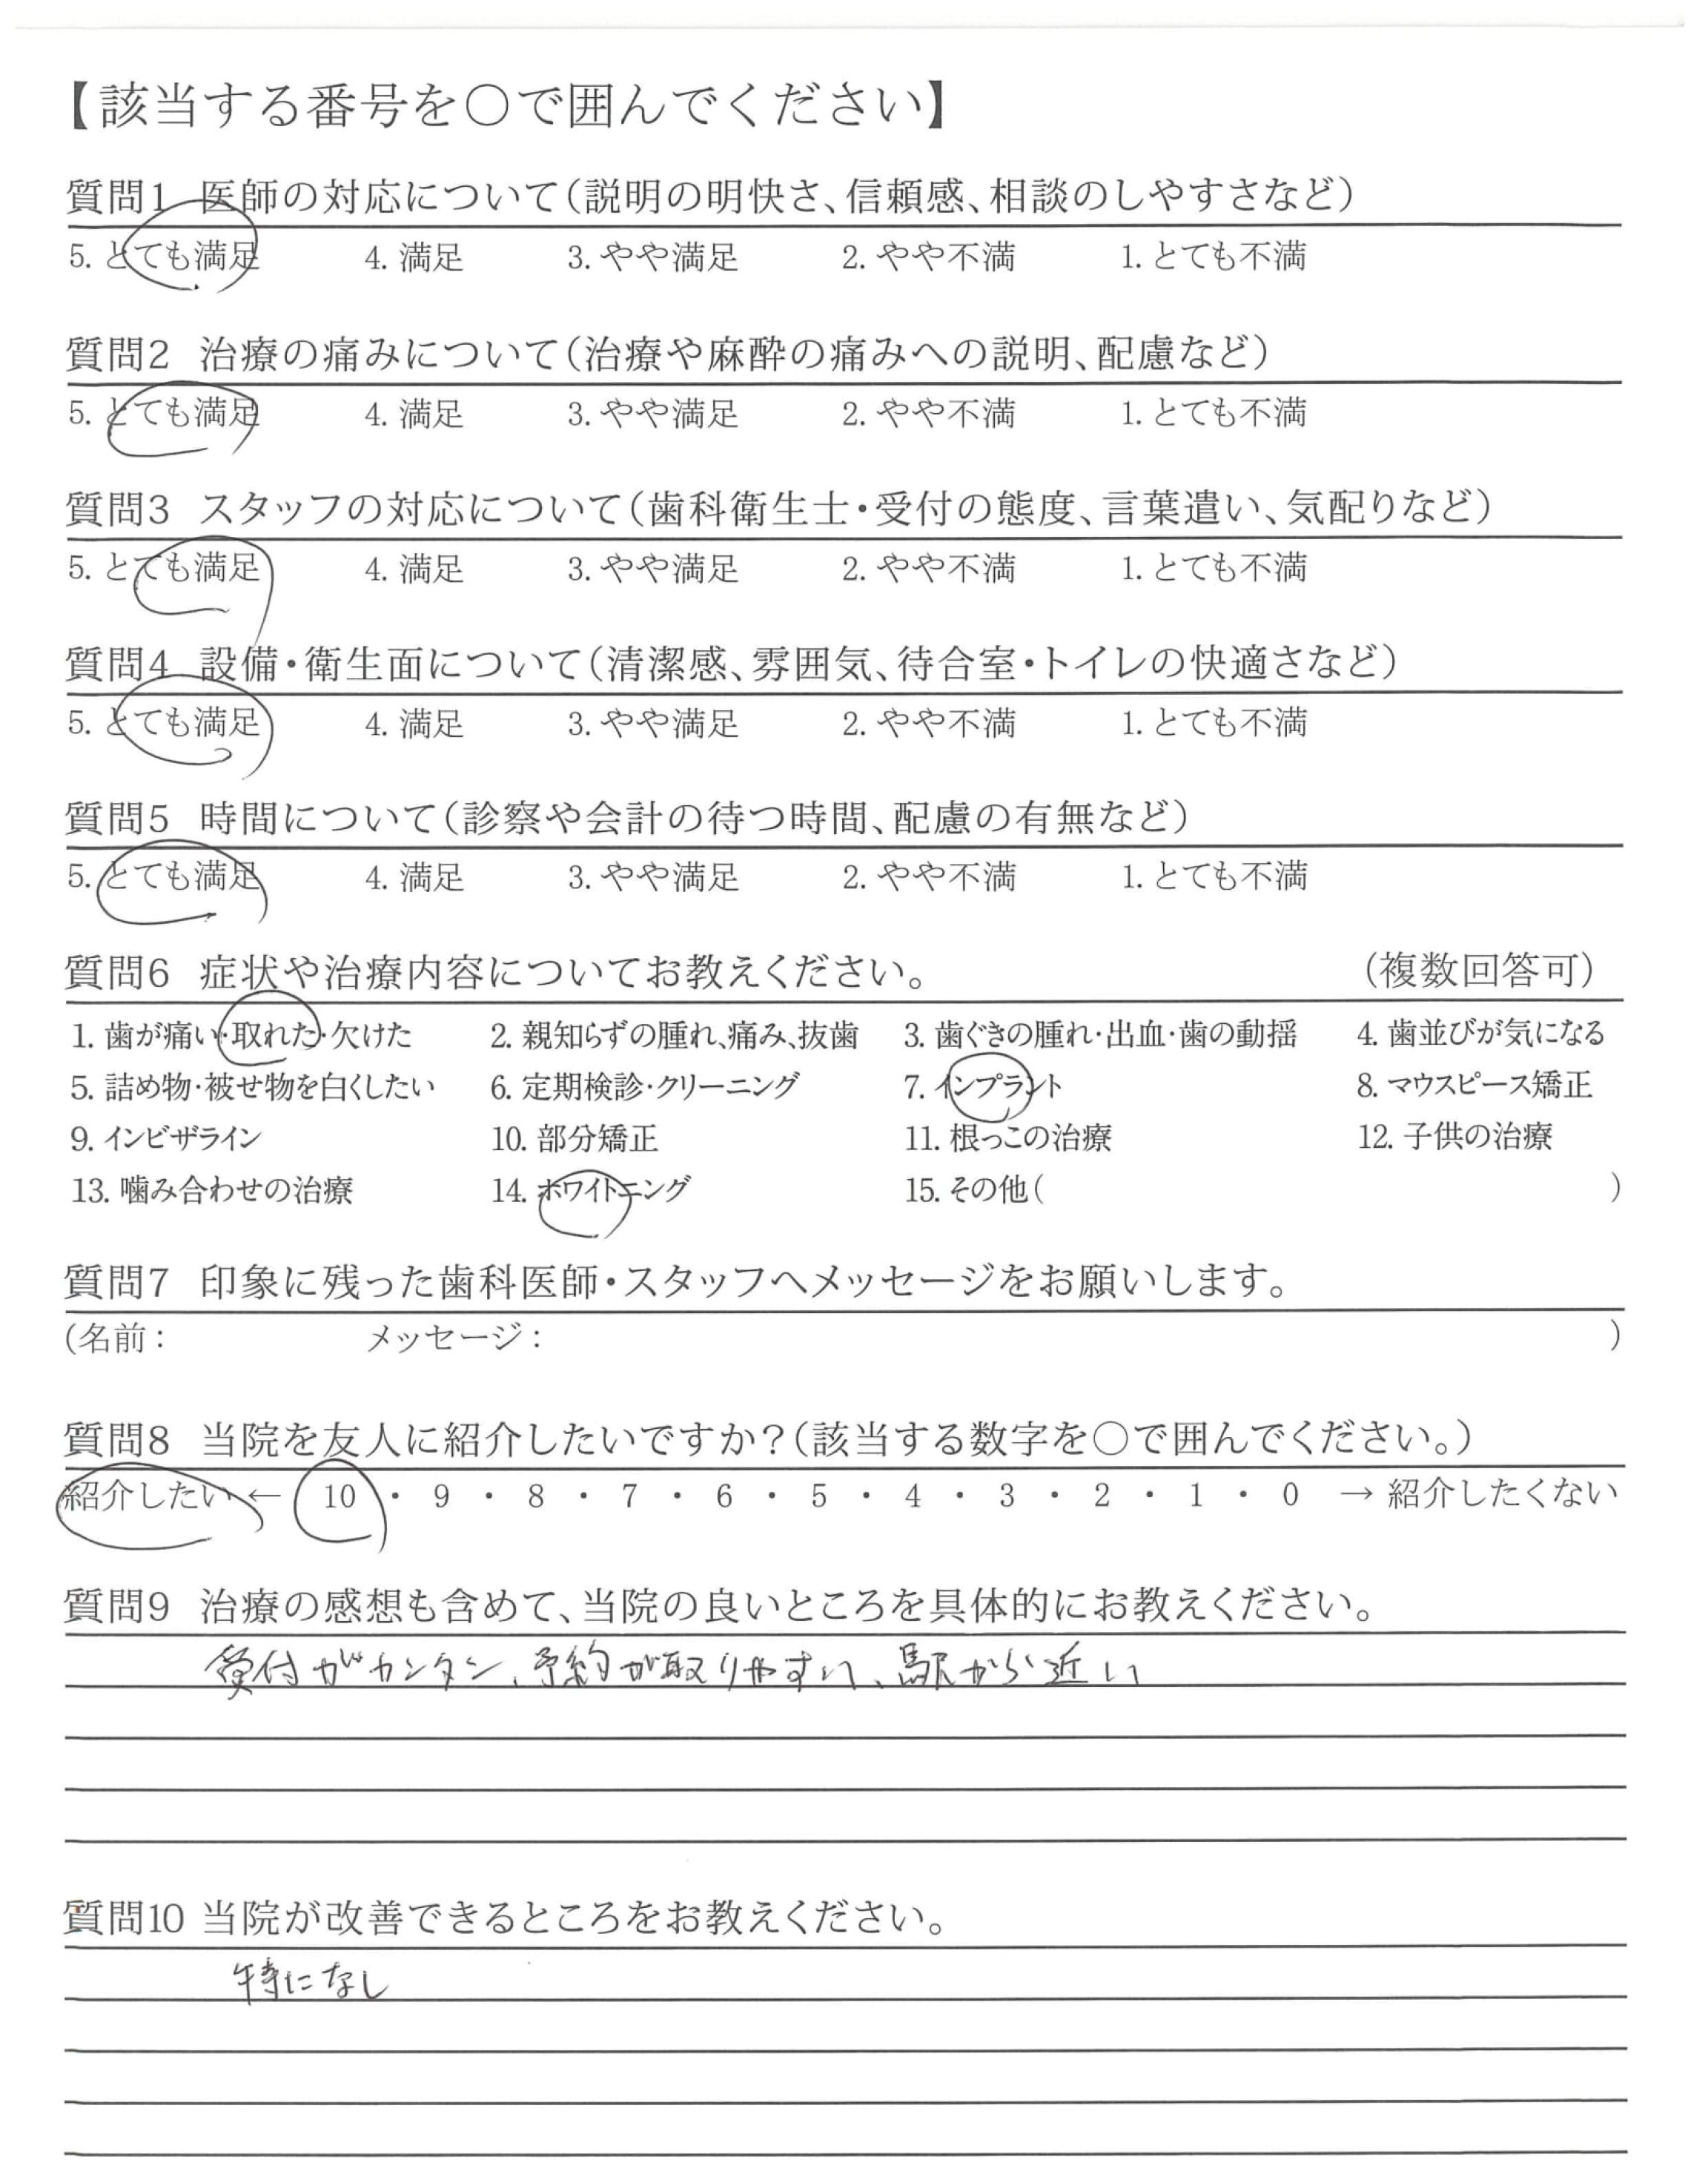 【該当する番号を○で囲んでください】
質問1 医師の対応について(説明の明快さ、信頼感、相談のしやすさなど)
5. とても満足 4. 満足 3. やや満足 2. やや不満 1. とても不満
質問2 治療の痛みについて(治療や麻酔の痛みへの説明、配慮など)
5. とても満足 4. 満足 3. やや満足 2. やや不満 1. とても不満
質問3 スタッフの対応について(歯科衛生士・受付の態度、言葉遣い、気配りなど)
5. とても満足 4. 満足 3. やや満足 2. やや不満 1. とても不満
質問4 設備・衛生面について(清潔感、雰囲気、待合室・トイレの快適さなど)
5. とても満足 4. 満足 3. やや満足 2. やや不満 1. とても不満
質問5 時間について(診察や会計の待つ時間、配慮の有無など)
5. とても満足 4. 満足 3. やや満足 2. やや不満 1. とても不満
質問6 症状や治療内容についてお教えください。 (複数回答可)
1. 歯が痛い・取れた・欠けた 2. 親知らずの腫れ、痛み、抜歯 3. 歯ぐきの腫れ・出血・歯の動揺 4. 歯並びが気になる
5. 詰め物・被せ物を白くしたい 6. 定期検診・クリーニング 7. インプラント 8. マウスピース矯正
9. インビザライン 10. 部分矯正 11. 根っこの治療 12. 子供の治療
13. 噛み合わせの治療 14. ホワイトニング 15. その他( )
質問7 印象に残った歯科医師・スタッフへメッセージをお願いします。
(名前: メッセージ: )
質問8 当院を友人に紹介したいですか?(該当する数字を○で囲んでください。)
紹介したい ← 10 ・ 9 ・ 8 ・ 7 ・ 6 ・ 5 ・ 4 ・ 3 ・ 2 ・ 1 ・ 0 → 紹介したくない
質問9 治療の感想も含めて、当院の良いところを具体的にお教えください。
受付がカンタン、予約が取りやすい、駅から近い
質問10 当院が改善できるところをお教えください。
特になし